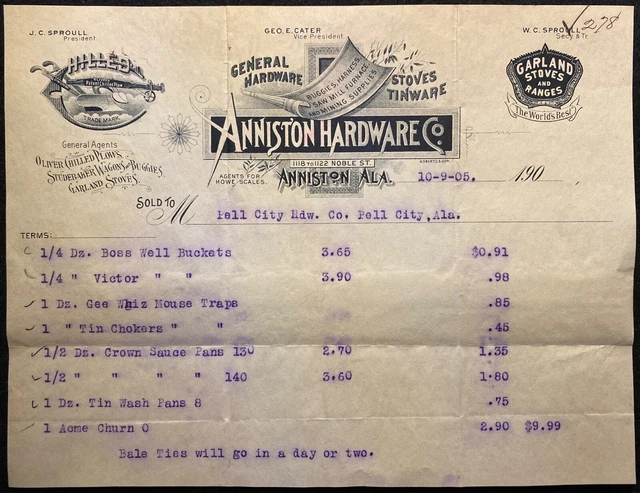 J.C. SPROULL
President.
GEO. E. CATER
Vice President.
W.C. SPROULL
Secy & Tr.
✓278
HILLES
TRADE MARK
GENERAL HARDWARE
BUGGIES, HARNESS,
SAW MILL, FURNACE
AND MINING SUPPLIES
STOVES TINWARE
GARLAND
STOVES
AND
RANGES
The World's Best
ANNISTON HARDWARE CO
1118 TO 1122 NOBLE ST.
General Agents
OLIVER CHILLED PLOWS.
STUDEBAKER WAGONS AND BUGGIES.
GARLAND STOVES.
AGENTS FOR
HOWE SCALES.
ANNISTON, ALA. 10-9-05. 190
SOLD TO M Pell City Hdw. Co. Pell City, Ala.
TERMS:
1/4 Dz. Boss Well Buckets 3.65 $0.91
1/4 " Victor " " 3.90 .98
1 Dz. Gee Whiz Mouse Traps .85
1 " Tin Chokers " " .45
1/2 Dz. Crown Sauce Pans 130 2.70 1.35
1/2 " " " " 140 3.60 1.80
1 Dz. Tin Wash Pans 8 .75
1 Acme Churn 0 2.90 $9.99
Bale Ties will go in a day or two.